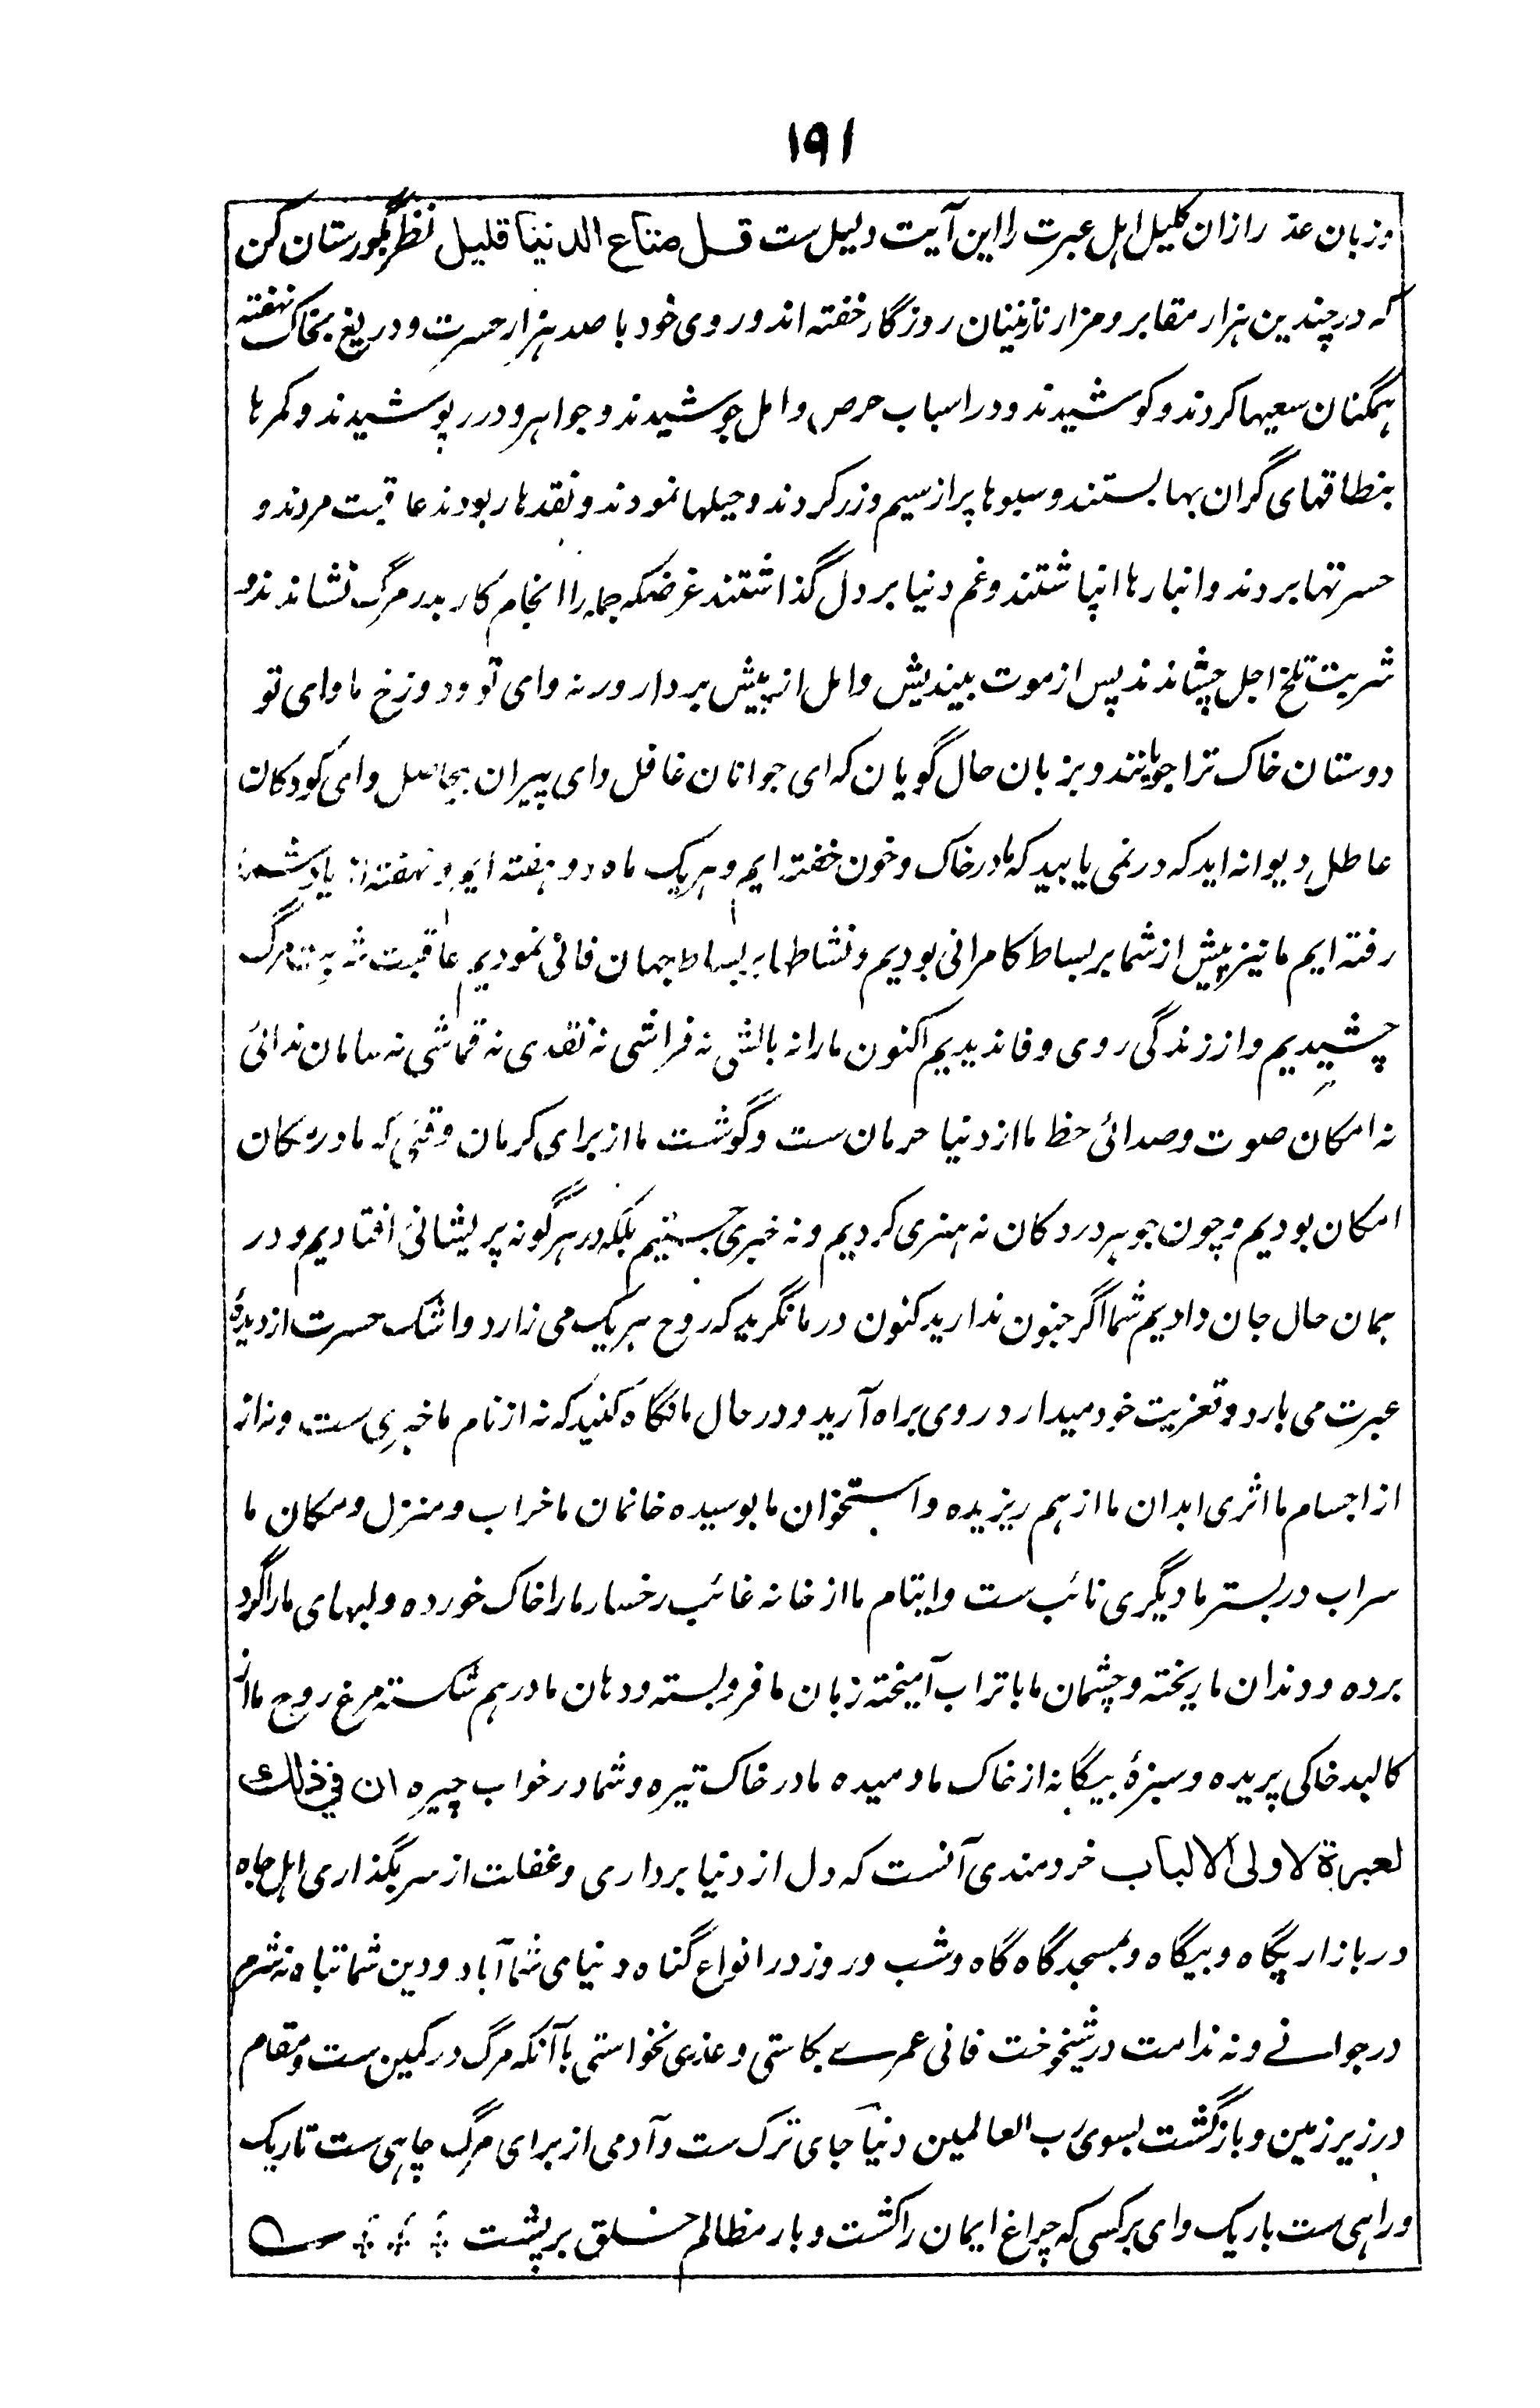 ۱۹۱
وزبان عذ رازان کلیل اهل عبرت را این آیت دلیل ست قل متاع الدنیا قلیل نظر بگورستان کن
که در چندین هزار مقابر و مزار نازنینان روزگار خفته اند و روی خود با صد هزار حسرت و دریغ بخاک نهفته
همگنان سعیها کردند و کوشیدند و در اسباب حرص و امل جوشیدند و جواهر و درر پوشیدند و کمرها
بنطاقهای گران بها بستند و سبوها پر از سیم و زر کردند و حیلها نمودند و نقدها ربودند عاقبت مردند و
حسرتها بردند و انبارها انپاشتند و غم دنیا بر دل گذاشتند غرضکه جمله را انجام کار بدر مرگ نشاندند و
شربت تلخ اجل چشاندند پس از موت بیندیش و امل از پیش بردار ورنه وای تو و دوزخ ماوای تو
دوستان خاک ترا جویانند و بزبان حال گویان که ای جوانان غافل وای پیران بیحاصل وای کودکان
عاطل دیوانه اید که در نمی یابید که ما در خاک و خون خفته ایم و هر یک ماه دو هفته ایم و نهفته
رفته ایم ما نیز پیش از شما بر بساط کامرانی بودیم و نشاط ها بر بساط جهان فانی نمودیم عاقبت شربت مرگ
چشیدیم و از زندگی روی وفا ندیدیم اکنون ما را نه بالشی نه فراشی نه نقدی نه قماشی نه سامان ندائی
نه امکان صوت و صدائی حظ ما از دنیا حرمان ست و گوشت ما از برای کرمان وقتی که ما در مکان
امکان بودیم و چون جوهر در دکان نه هنری کردیم و نه خبری جستیم بلکه در هر گونه پریشانی افتادیم و در
بمان حال جان دادیم شما اگر جنون ندارید کنون در ما نگرید که روح هر یک می زارد و اشک حسرت از دیدهٔ
عبرت می بارد و تعزیت خود میدارد روی براه آرید و در حال ما نگاه کنید که نه از نام ما خبری ست و نه از
از اجسام ما اثری ابدان ما از هم ریزیده و استخوان ما بوسیده خانمان ما خراب و منزل و مکان ما
سراب در بستر ما دیگری نائب ست و ایتام ما از خانه غائب رخسار ما را خاک خورده و لبهای ما را گرد
برده و دندان ما ریخته و چشمان ما با تراب آمیخته زبان ما فروبسته و دهان ما در هم شکسته مرغ روح ما از
کالبد خاکی پریده و سبزهٔ بیگانه از خاک ما دمیده ما در خاک تیره و شما در خواب چیره ان فی ذلك
لعبرة لاولی الالباب خردمندی آنست که دل از دنیا برداری و غفلت از سر بگذاری اهل جاه
در بازار پگاه و بیگاه و بمسجد گاه گاه و شب و روز در انواع گناه دنیای شما آباد و دین شما تباه نه شرم
در جوانے و نه ندامت در شیخوخت فانی عمرے بکاستی و عذری نخواستی با آنکه مرگ در کمین ست و مقام
در زیر زمین و بازگشت بسوی رب العالمین دنیا جای ترک ست و آدمی از برای مرگ چاهی ست تاریک
و راهی ست باریک وای بر کسی که چراغ ایمان را کشت و بار مظالم خلق بر پشت